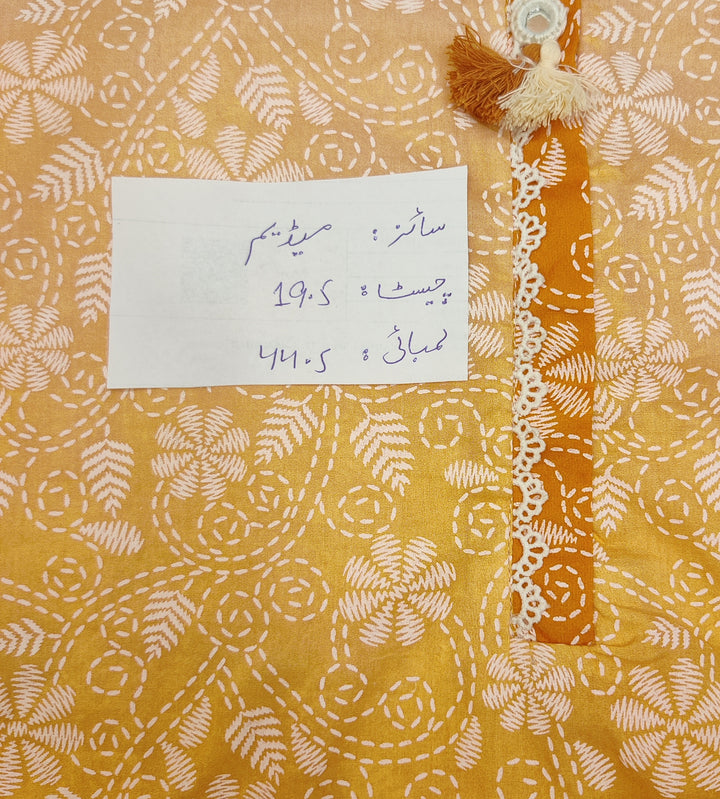 سائز: میڈیم
چیسٹ: 19.5
لمبائی: 44.5